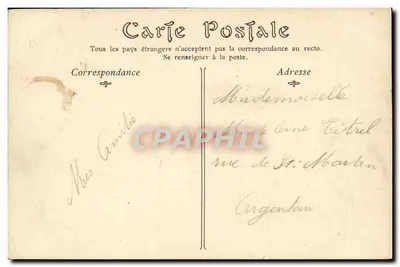 Carte Postale
Tous les pays étrangers n'acceptent pas la correspondance au recto.
Se renseigner à la poste.
Correspondance
Adresse
Mes Amitié
Mademoiselle
Madeleine
rue de St. Martin
Argentan
CPAPHIL